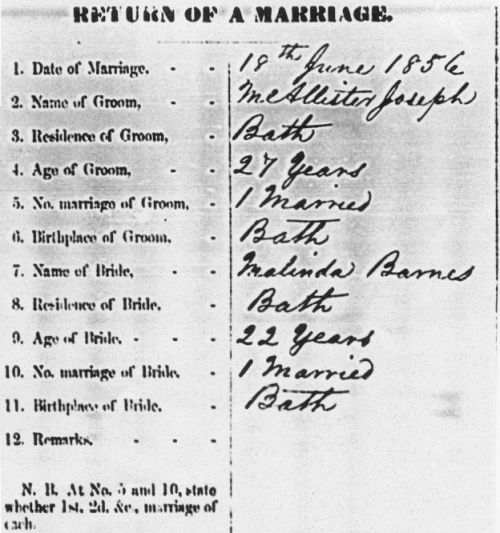 RETURN OF A MARRIAGE.
1. Date of Marriage. - - 18th June 1856
2. Name of Groom, - - McAllister Joseph
3. Residence of Groom, - Bath
4. Age of Groom, - - 27 Years
5. No. marriage of Groom, - 1 Married
6. Birthplace of Groom, - Bath
7. Name of Bride, - - Malinda Barnes
8. Residence of Bride. - Bath
9. Age of Bride. - - - 22 Years
10. No. marriage of Bride. - 1 Married
11. Birthplace of Bride. - Bath
12. Remarks. - - -
N. B. At No. 5 and 10, state
whether 1st, 2d, &c., marriage of
each.